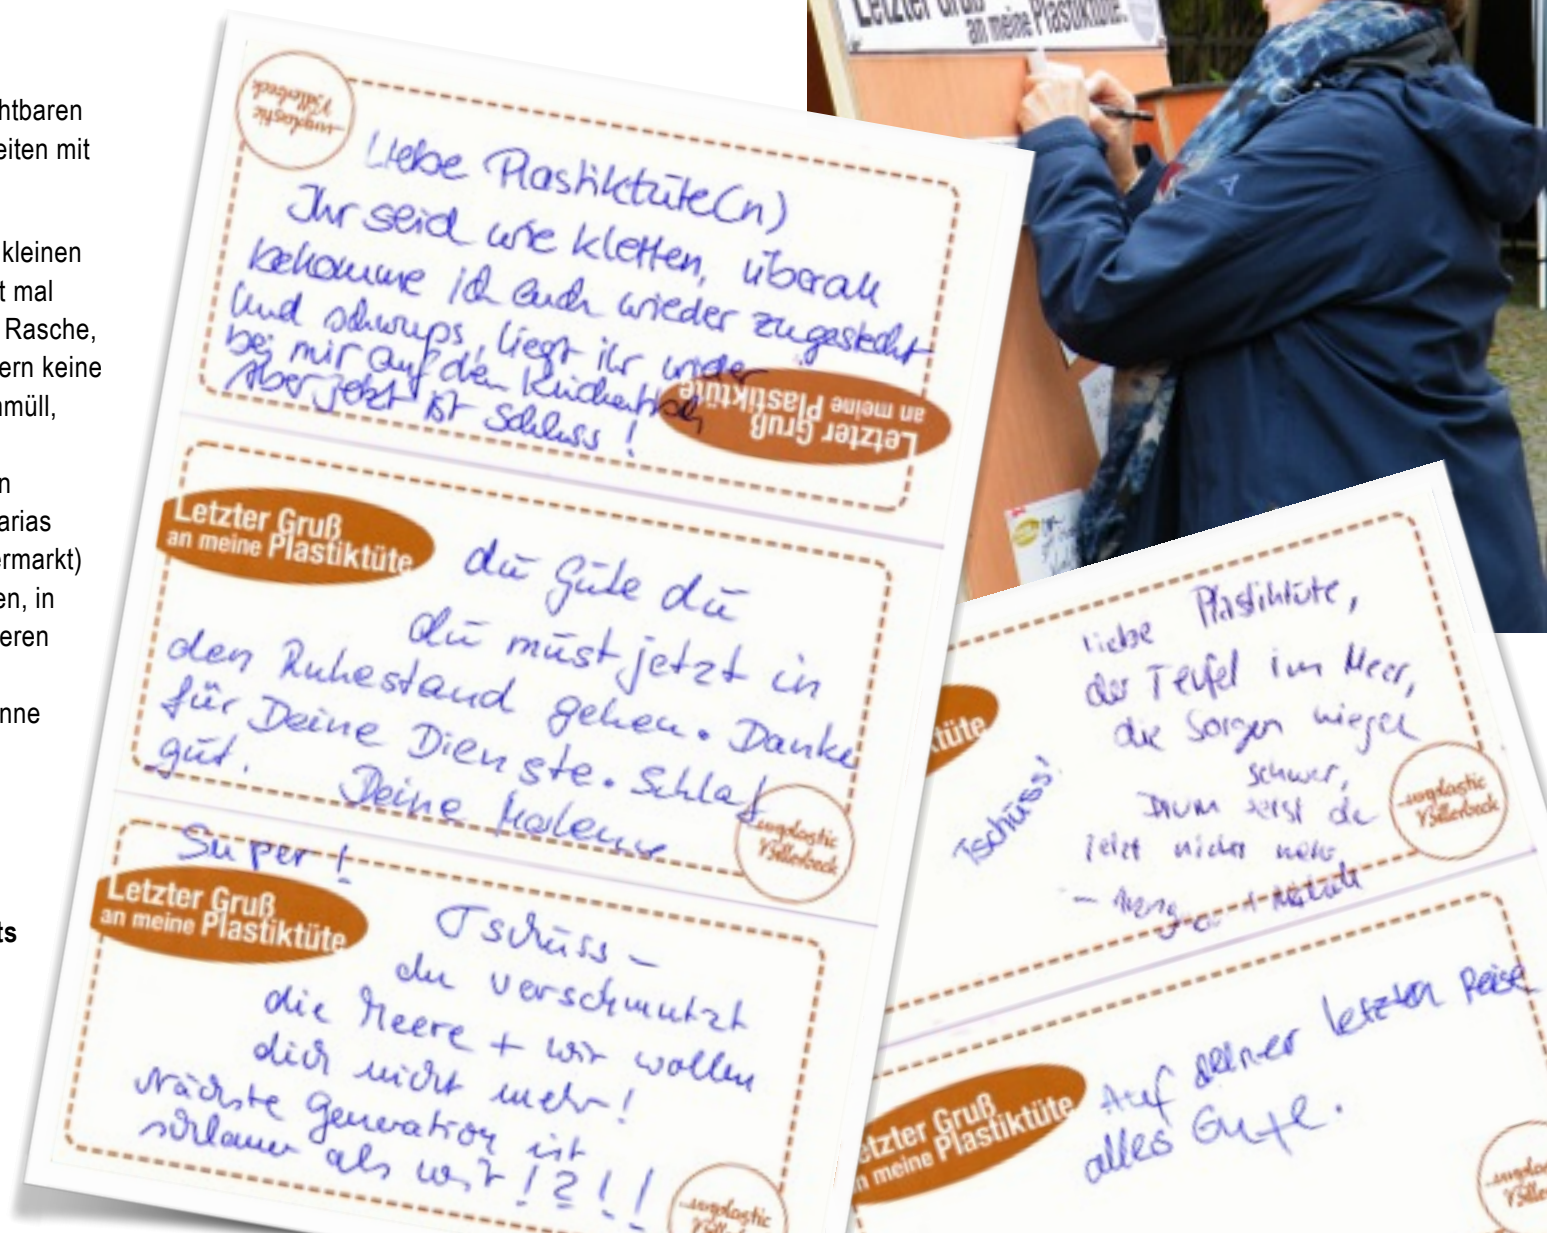 htbaren
eiten mit
kleinen
t mal
Rasche,
ern keine
müll,
n
arias
ermarkt)
en, in
eren
nne
ts
Letzter Gruß
an meine Plastiktüte.
unplastic
Billerbeck
Liebe Plastiktüte(n)
Ihr seid wie Kletten, überall
bekomme ich euch wieder zugesteckt
und schwups, liegt ihr wieder
bei mir auf dem Küchentisch
Aber jetzt ist Schluss!
Letzter Gruß
an meine Plastiktüte
Letzter Gruß
an meine Plastiktüte
du Gute du
du must jetzt in
den Ruhestand gehen. Danke
für Deine Dienste. Schlaf
gut. Deine
unplastic
Billerbeck
Super!
Letzter Gruß
an meine Plastiktüte
Tschüss –
du verschmutzt
die Meere + wir wollen
dich nicht mehr!
Nächste Generation ist
schlauer als wir!?!!
unplastic
Billerbeck
tüte
Liebe Plastiktüte,
der Teufel im Meer,
die Sorgen wiegen
schwer,
Drum seist du
jetzt nicht mehr
Tschüss!
unplastic
Billerbeck
etzter Gruß
n meine Plastiktüte
Auf deiner letzten Reise
alles Gute.